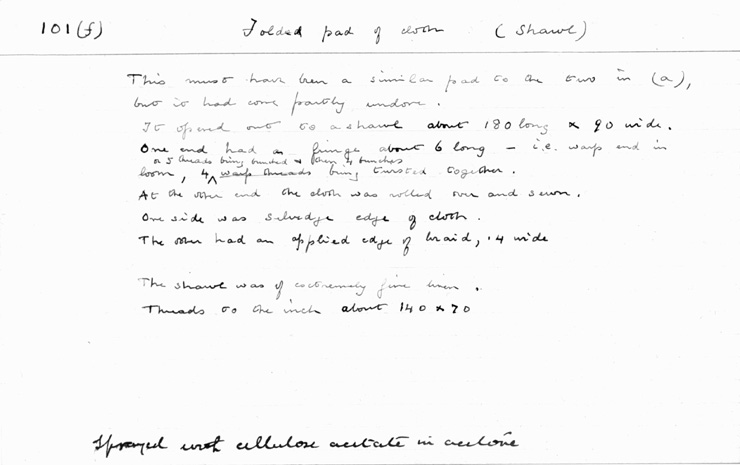 101(f) Folded pad of cloth (Shawl)
This must have been a similar pad to the two in (a),
but it had come partly undone.
It opened out to a shawl about 180 long x 90 wide.
One end had a fringe about 6 long – i.e. warp end in
or 5 threads being bunched & then 4 bunches
loom, 4 warp threads being twisted together.
At the other end the cloth was rolled over and sewn.
One side was selvedge edge of cloth.
The other had an applied edge of braid, .4 wide
The shawl was of extremely fine linen.
Threads to the inch about 140 x 70
Sprayed with cellulose acetate in acetone